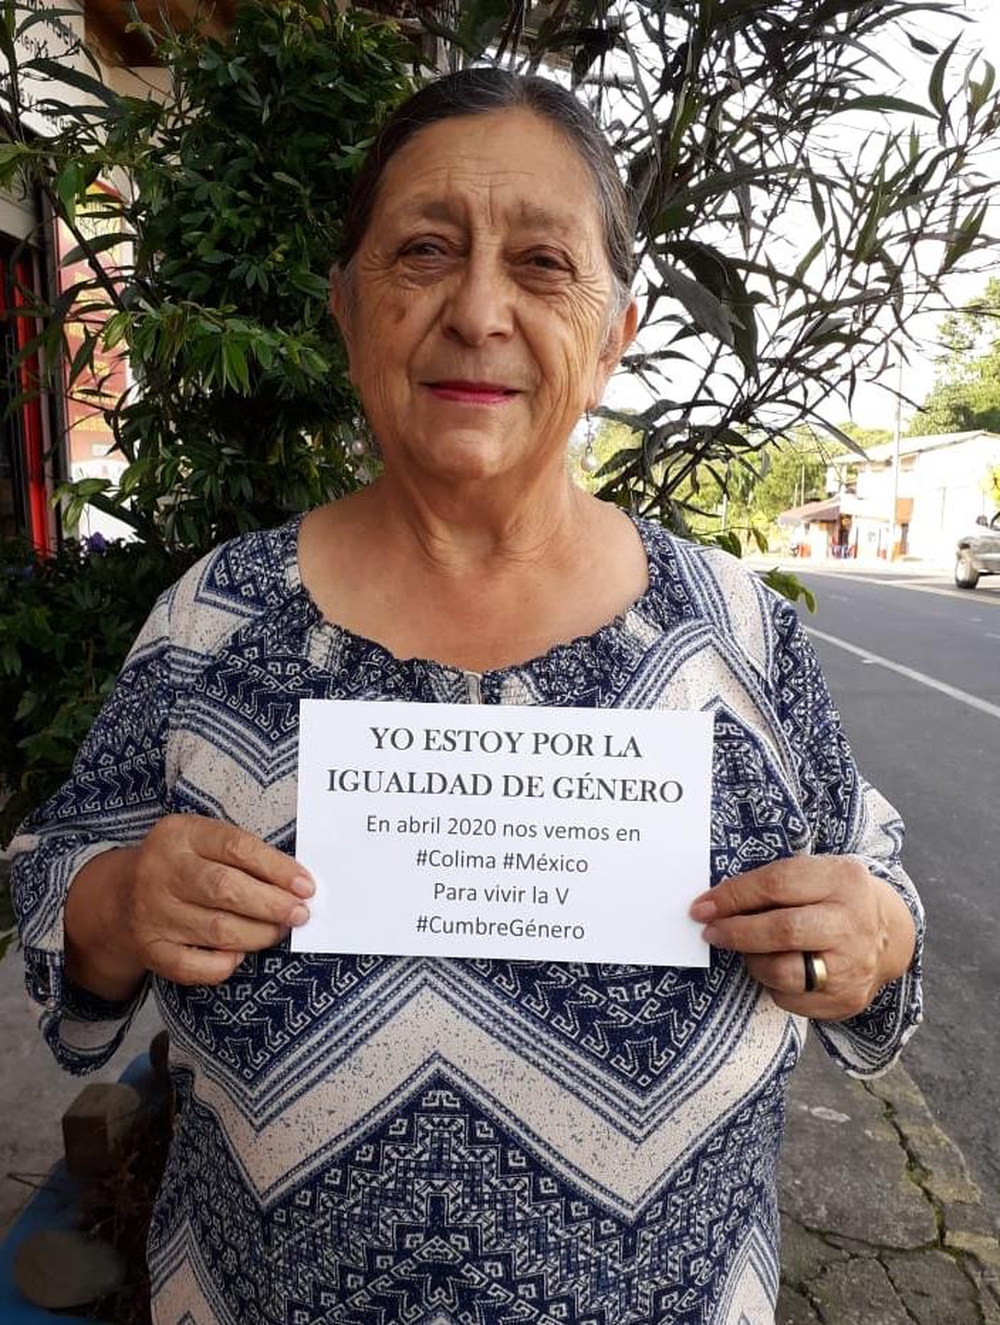 YO ESTOY POR LA
IGUALDAD DE GÉNERO
En abril 2020 nos vemos en
#Colima #México
Para vivir la V
#CumbreGénero